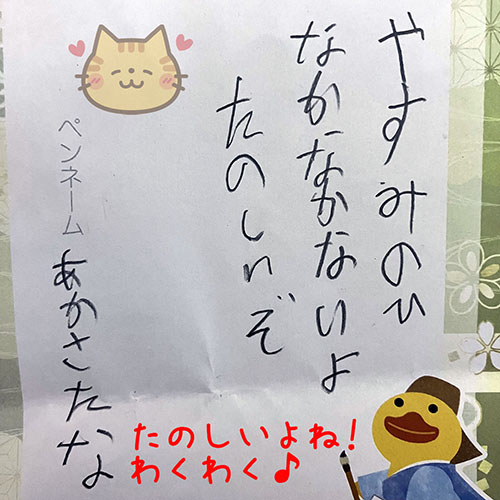 やすみのひ
なかなかないよ
たのしいぞ
ペンネーム あかさたな
たのしいよね!
わくわく♪